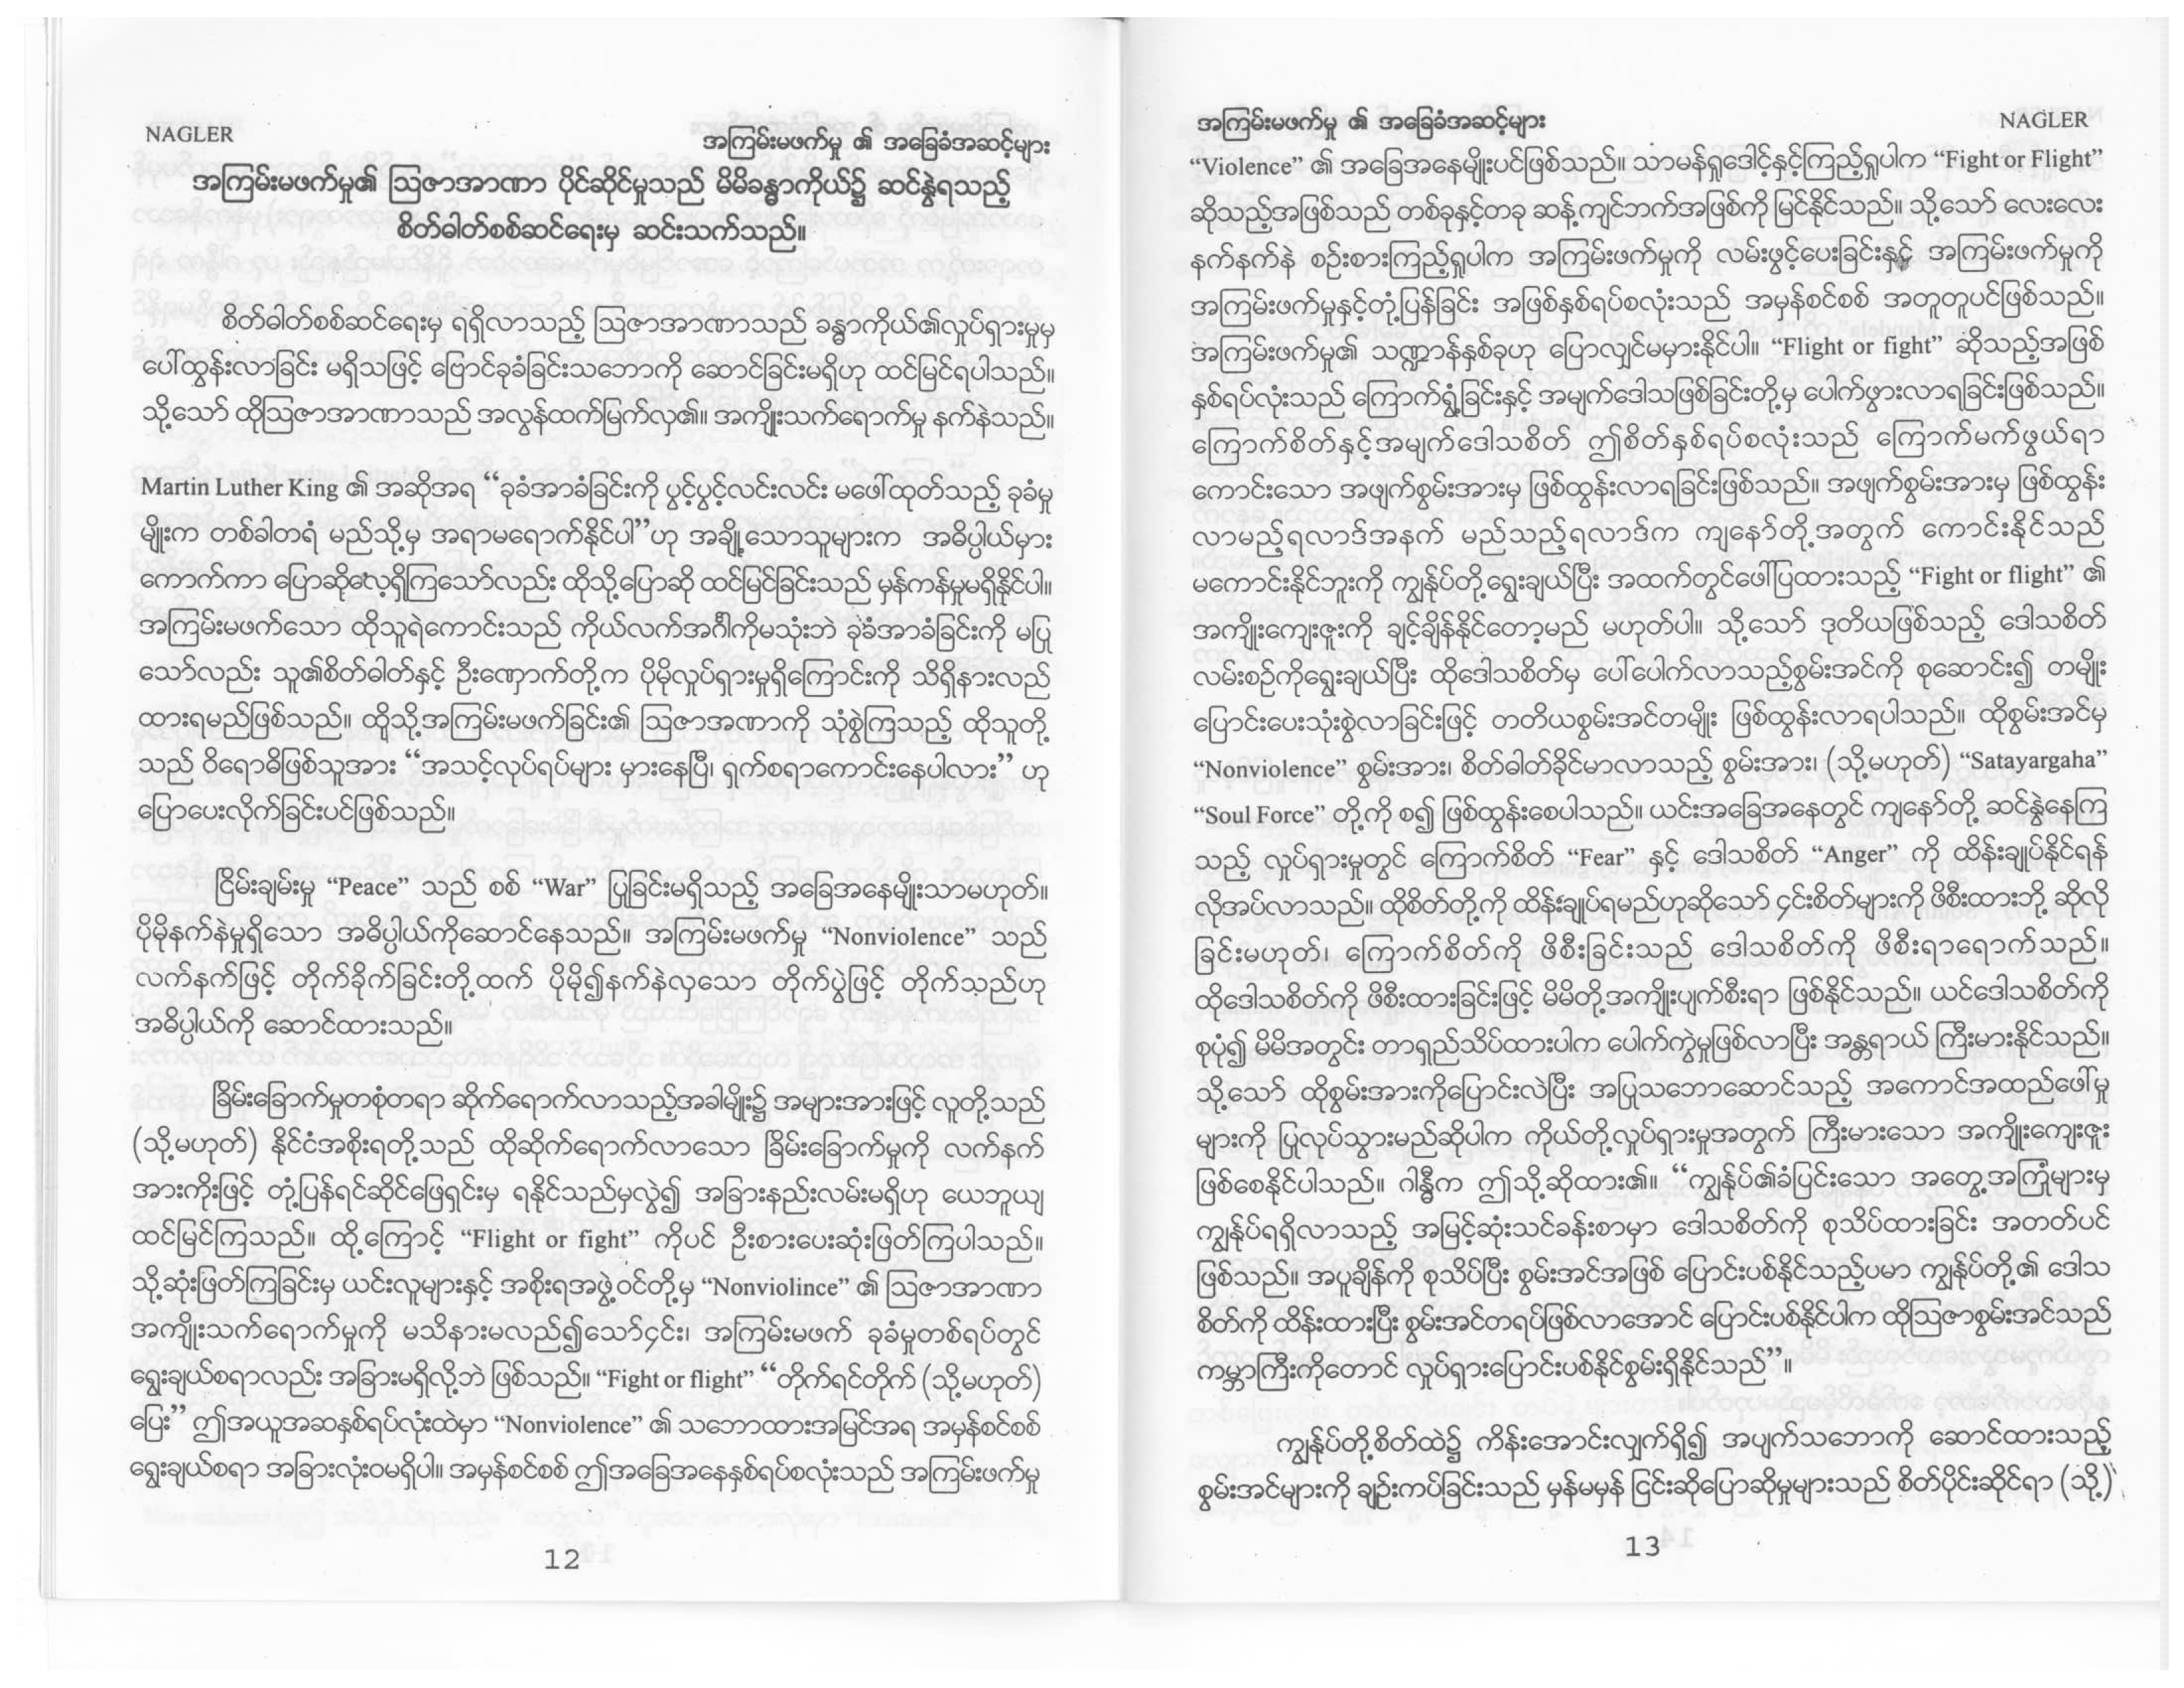 NAGLER
အကြမ်းမဖက်မှု ၏ အခြေခံအဆင့်များ
အကြမ်းမဖက်မှု၏ ဩဇာအာဏာ ပိုင်ဆိုင်မှုသည် မိမိခန္ဓာကိုယ်၌ ဆင်နွှဲရသည့်
စိတ်ဓါတ်စစ်ဆင်ရေးမှ ဆင်းသက်သည်။
စိတ်ဓါတ်စစ်ဆင်ရေးမှ ရရှိလာသည့် ဩဇာအာဏာသည် ခန္ဓာကိုယ်၏လှုပ်ရှားမှုမှ
ပေါ်ထွန်းလာခြင်း မရှိသဖြင့် ဗြောင်ခုခံခြင်းသဘောကို ဆောင်ခြင်းမရှိဟု ထင်မြင်ရပါသည်။
သို့သော် ထိုဩဇာအာဏာသည် အလွန်ထက်မြက်လှ၏။ အကျိုးသက်ရောက်မှု နက်နဲသည်။
Martin Luther King ၏ အဆိုအရ “ခုခံအာခံခြင်းကို ပွင့်ပွင့်လင်းလင်း မဖေါ်ထုတ်သည့် ခုခံမှု
မျိုးက တစ်ခါတရံ မည်သို့မှ အရာမရောက်နိုင်ပါ”ဟု အချို့သောသူများက အဓိပ္ပါယ်မှား
ကောက်ကာ ပြောဆိုလေ့ရှိကြသော်လည်း ထိုသို့ပြောဆို ထင်မြင်ခြင်းသည် မှန်ကန်မှုမရှိနိုင်ပါ။
အကြမ်းမဖက်သော ထိုသူရဲကောင်းသည် ကိုယ်လက်အင်္ဂါကိုမသုံးဘဲ ခုခံအာခံခြင်းကို မပြု
သော်လည်း သူ၏စိတ်ဓါတ်နှင့် ဦးဏှောက်တို့က ပိုမိုလှုပ်ရှားမှုရှိကြောင်းကို သိရှိနားလည်
ထားရမည်ဖြစ်သည်။ ထိုသို့အကြမ်းမဖက်ခြင်း၏ ဩဇာအဏာကို သုံစွဲကြသည့် ထိုသူတို့
သည် ဝိရောဓိဖြစ်သူအား “အသင့်လုပ်ရပ်များ မှားနေပြီ၊ ရှက်စရာကောင်းနေပါလား” ဟု
ပြောပေးလိုက်ခြင်းပင်ဖြစ်သည်။
ငြိမ်းချမ်းမှု “Peace” သည် စစ် “War” ပြုခြင်းမရှိသည့် အခြေအနေမျိုးသာမဟုတ်။
ပိုမိုနက်နဲမှုရှိသော အဓိပ္ပါယ်ကိုဆောင်နေသည်။ အကြမ်းမဖက်မှု “Nonviolence” သည်
လက်နက်ဖြင့် တိုက်ခိုက်ခြင်းတို့ထက် ပိုမို၍နက်နဲလှသော တိုက်ပွဲဖြင့် တိုက်သည်ဟု
အဓိပ္ပါယ်ကို ဆောင်ထားသည်။
ခြိမ်းခြောက်မှုတစုံတရာ ဆိုက်ရောက်လာသည့်အခါမျိုး၌ အများအားဖြင့် လူတို့သည်
(သို့မဟုတ်) နိုင်ငံအစိုးရတို့သည် ထိုဆိုက်ရောက်လာသော ခြိမ်းခြောက်မှုကို လက်နက်
အားကိုးဖြင့် တုံ့ပြန်ရင်ဆိုင်ဖြေရှင်းမှ ရနိုင်သည်မှလွဲ၍ အခြားနည်းလမ်းမရှိဟု ယေဘူယျ
ထင်မြင်ကြသည်။ ထို့ကြောင့် “Flight or fight” ကိုပင် ဦးစားပေးဆုံးဖြတ်ကြပါသည်။
သို့ဆုံးဖြတ်ကြခြင်းမှ ယင်းလူများနှင့် အစိုးရအဖွဲ့ဝင်တို့မှ “Nonviolince” ၏ ဩဇာအာဏာ
အကျိုးသက်ရောက်မှုကို မသိနားမလည်၍သော်၄င်း၊ အကြမ်းမဖက် ခုခံမှုတစ်ရပ်တွင်
ရွေးချယ်စရာလည်း အခြားမရှိလို့ဘဲ ဖြစ်သည်။ “Fight or flight” “တိုက်ရင်တိုက် (သို့မဟုတ်)
ပြေး” ဤအယူအဆနှစ်ရပ်လုံးထဲမှာ “Nonviolence” ၏ သဘောထားအမြင်အရ အမှန်စင်စစ်
ရွေးချယ်စရာ အခြားလုံးဝမရှိပါ။ အမှန်စင်စစ် ဤအခြေအနေနှစ်ရပ်စလုံးသည် အကြမ်းဖက်မှု
12
အကြမ်းမဖက်မှု ၏ အခြေခံအဆင့်များ
NAGLER
“Violence” ၏ အခြေအနေမျိုးပင်ဖြစ်သည်။ သာမန်ရှုဒေါင့်နှင့်ကြည့်ရှုပါက “Fight or Flight”
ဆိုသည့်အဖြစ်သည် တစ်ခုနှင့်တခု ဆန့်ကျင်ဘက်အဖြစ်ကို မြင်နိုင်သည်။ သို့သော် လေးလေး
နက်နက်နဲ စဉ်းစားကြည့်ရှုပါက အကြမ်းဖက်မှုကို လမ်းဖွင့်ပေးခြင်းနှင့် အကြမ်းဖက်မှုကို
အကြမ်းဖက်မှုနှင့်တုံ့ပြန်ခြင်း အဖြစ်နှစ်ရပ်စလုံးသည် အမှန်စင်စစ် အတူတူပင်ဖြစ်သည်။
အကြမ်းဖက်မှု၏ သဏ္ဍာန်နှစ်ခုဟု ပြောလျှင်မမှားနိုင်ပါ။ “Flight or fight” ဆိုသည့်အဖြစ်
နှစ်ရပ်လုံးသည် ကြောက်ရွံ့ခြင်းနှင့် အမျက်ဒေါသဖြစ်ခြင်းတို့မှ ပေါက်ဖွားလာရခြင်းဖြစ်သည်။
ကြောက်စိတ်နှင့်အမျက်ဒေါသစိတ် ဤစိတ်နှစ်ရပ်စလုံးသည် ကြောက်မက်ဖွယ်ရာ
ကောင်းသော အဖျက်စွမ်းအားမှ ဖြစ်ထွန်းလာရခြင်းဖြစ်သည်။ အဖျက်စွမ်းအားမှ ဖြစ်ထွန်း
လာမည့်ရလာဒ်အနက် မည်သည့်ရလာဒ်က ကျနော်တို့အတွက် ကောင်းနိုင်သည်
မကောင်းနိုင်ဘူးကို ကျွန်ုပ်တို့ရွေးချယ်ပြီး အထက်တွင်ဖေါ်ပြထားသည့် “Fight or flight” ၏
အကျိုးကျေးဇူးကို ချင့်ချိန်နိုင်တော့မည် မဟုတ်ပါ။ သို့သော် ဒုတိယဖြစ်သည့် ဒေါသစိတ်
လမ်းစဉ်ကိုရွေးချယ်ပြီး ထိုဒေါသစိတ်မှ ပေါ်ပေါက်လာသည့်စွမ်းအင်ကို စုဆောင်း၍ တမျိုး
ပြောင်းပေးသုံးစွဲလာခြင်းဖြင့် တတိယစွမ်းအင်တမျိုး ဖြစ်ထွန်းလာရပါသည်။ ထိုစွမ်းအင်မှ
“Nonviolence” စွမ်းအား၊ စိတ်ဓါတ်ခိုင်မာလာသည့် စွမ်းအား၊ (သို့မဟုတ်) “Satayargaha”
“Soul Force” တို့ကို စ၍ ဖြစ်ထွန်းစေပါသည်။ ယင်းအခြေအနေတွင် ကျနော်တို့ ဆင်နွှဲနေကြ
သည့် လှုပ်ရှားမှုတွင် ကြောက်စိတ် “Fear” နှင့် ဒေါသစိတ် “Anger” ကို ထိန်းချုပ်နိုင်ရန်
လိုအပ်လာသည်။ ထိုစိတ်တို့ကို ထိန်းချုပ်ရမည်ဟုဆိုသော် ၄င်းစိတ်များကို ဖိစီးထားဘို့ ဆိုလို
ခြင်းမဟုတ်၊ ကြောက်စိတ်ကို ဖိစီးခြင်းသည် ဒေါသစိတ်ကို ဖိစီးရာရောက်သည်။
ထိုဒေါသစိတ်ကို ဖိစီးထားခြင်းဖြင့် မိမိတို့အကျိုးပျက်စီးရာ ဖြစ်နိုင်သည်။ ယင်ဒေါသစိတ်ကို
စုပုံ၍ မိမိအတွင်း တာရှည်သိပ်ထားပါက ပေါက်ကွဲမှုဖြစ်လာပြီး အန္တရာယ် ကြီးမားနိုင်သည်။
သို့သော် ထိုစွမ်းအားကိုပြောင်းလဲပြီး အပြုသဘောဆောင်သည့် အကောင်အထည်ဖေါ်မှု
များကို ပြုလုပ်သွားမည်ဆိုပါက ကိုယ်တို့လှုပ်ရှားမှုအတွက် ကြီးမားသော အကျိုးကျေးဇူး
ဖြစ်စေနိုင်ပါသည်။ ဂါန္ဓီက ဤသို့ဆိုထား၏။ “ကျွန်ုပ်၏ခံပြင်းသော အတွေ့အကြုံများမှ
ကျွန်ုပ်ရရှိလာသည့် အမြင့်ဆုံးသင်ခန်းစာမှာ ဒေါသစိတ်ကို စုသိပ်ထားခြင်း အတတ်ပင်
ဖြစ်သည်။ အပူချိန်ကို စုသိပ်ပြီး စွမ်းအင်အဖြစ် ပြောင်းပစ်နိုင်သည့်ပမာ ကျွန်ုပ်တို့၏ ဒေါသ
စိတ်ကို ထိန်းထားပြီး စွမ်းအင်တရပ်ဖြစ်လာအောင် ပြောင်းပစ်နိုင်ပါက ထိုဩဇာစွမ်းအင်သည်
ကမ္ဘာကြီးကိုတောင် လှုပ်ရှားပြောင်းပစ်နိုင်စွမ်းရှိနိုင်သည်”။
ကျွန်ုပ်တို့စိတ်ထဲ၌ ကိန်းအောင်းလျှက်ရှိ၍ အပျက်သဘောကို ဆောင်ထားသည့်
စွမ်းအင်များကို ချဉ်းကပ်ခြင်းသည် မှန်မမှန် ငြင်းဆိုပြောဆိုမှုများသည် စိတ်ပိုင်းဆိုင်ရာ (သို့)
13